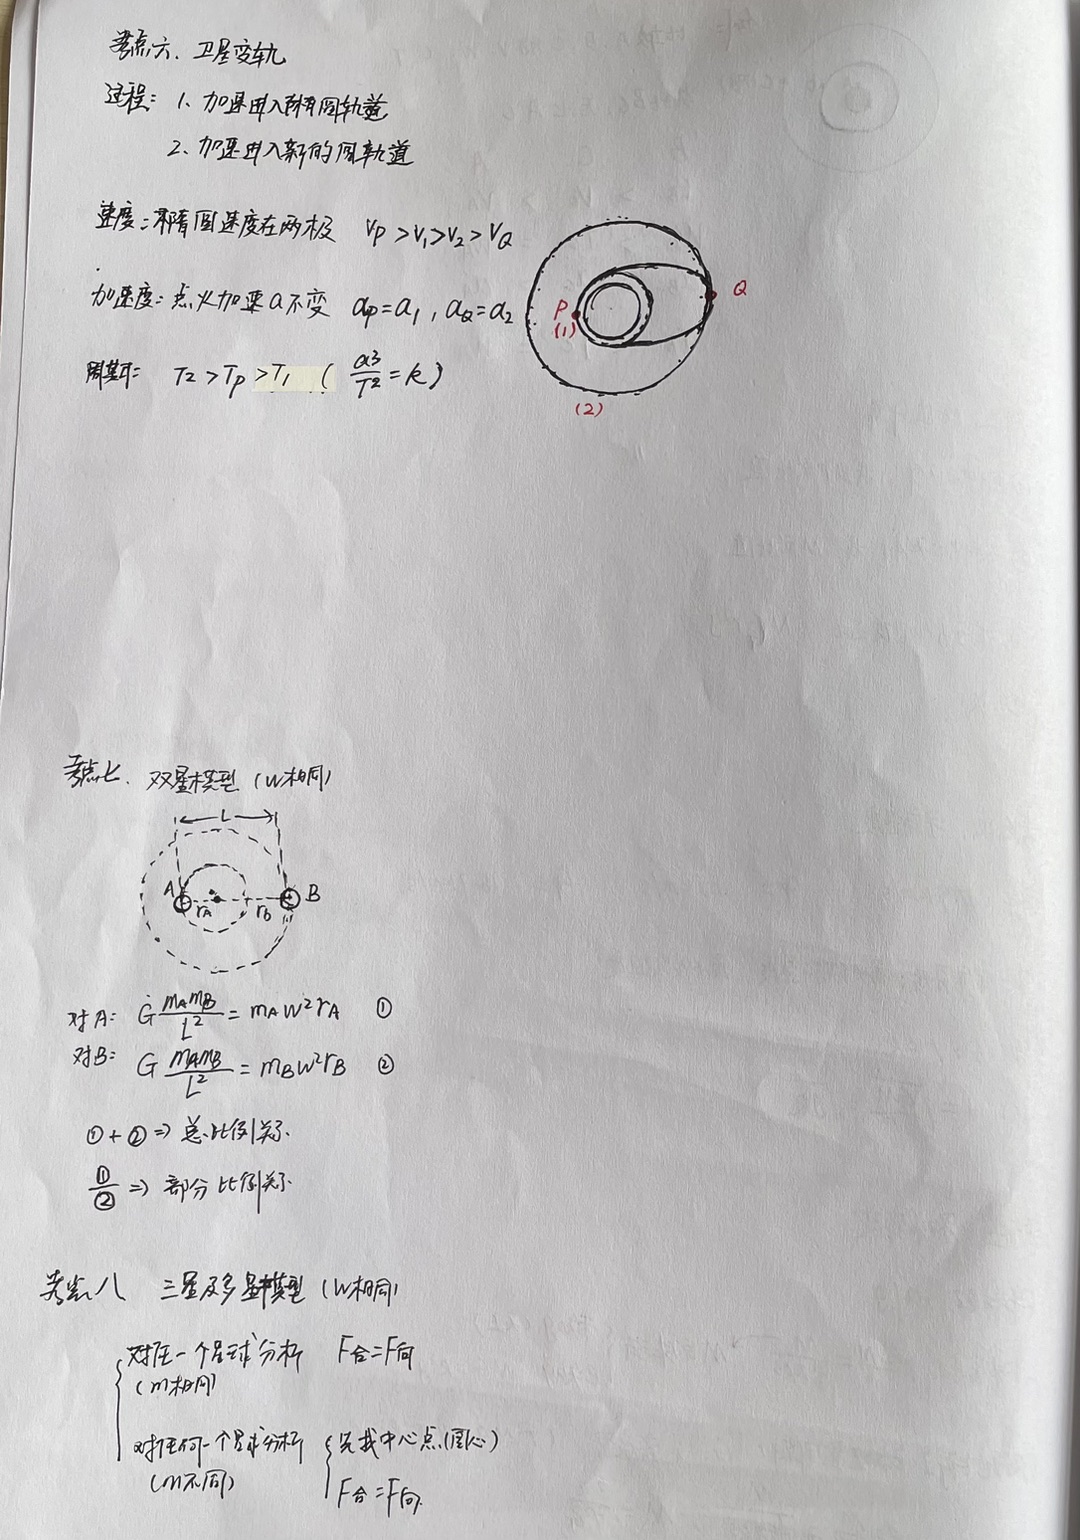 考点六、卫星变轨
过程: 1、加速进入椭圆轨道
2、加速进入新的圆轨道
速度: 椭圆速度在两极 VP>V1>V2>VQ
加速度: 点火加速a不变 aP=a1, aQ=a2
周期: T2>TP>T1 ( a³/T²=k )
P
(1)
Q
(2)
考点七、双星模型 (W相同)
L
A rA rB B
对A: G mAmB/L² = mAW²rA ①
对B: G mAmB/L² = mBW²rB ②
①+② => 总比例关系
①/② => 部分比例关系
考点八 三星及多星模型 (W相同)
对任一个星球分析 F合=F向
(m相同)
对任何一个星球分析 先找中心点(圆心)
(m不同)
F合=F向